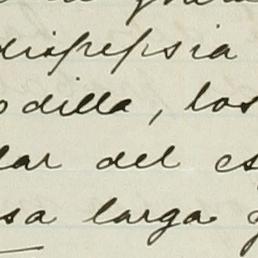 dispepsia
odilla, los
lar del es
sa larga